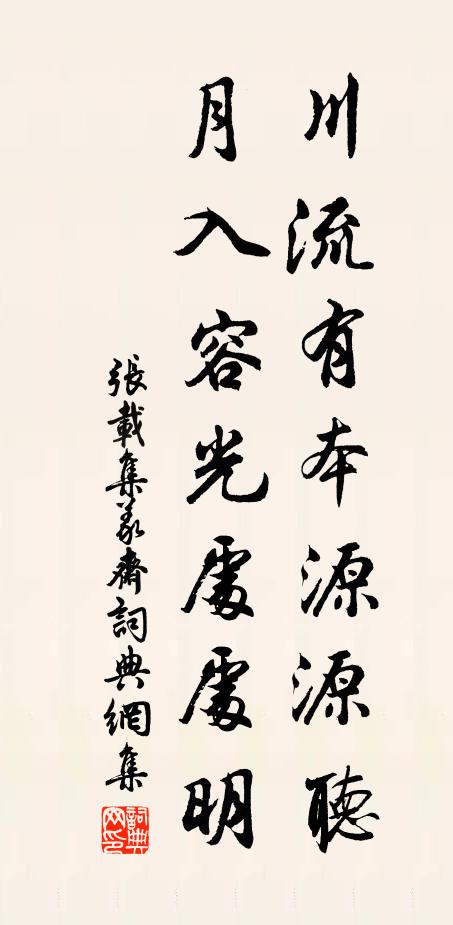 川流有本源源聽
月入容光處處明
張載集義齋詞典網集
詞典網印